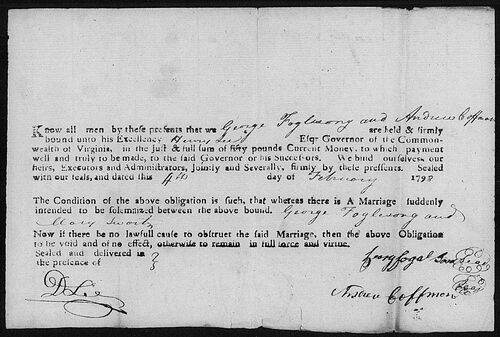 Know all men by these presents that we George Foglesong and Andrew Coffman
are held & firmly
bound unto his Excellency Henry Lee Esqr Governor of the Common-
wealth of Virginia, in the just & full sum of fifty pounds Current Money, to which payment
well and truly to be made, to the said Governor or his Successors. We bind ourselves, our
heirs, Executors and Administrators, Jointly and Severally, firmly by these pressents. Sealed
with our seals, and dated this 4th day of February 179
The Condition of the above obligation is such, that whereas there is A Marriage suddenly
intended to be solemnized between the above bound. George Foglesong and
Mary
Now if there be no lawful cause to obstruct the said Marriage, then the above Obligation
to be void and of no effect, otherwise to remain in full force and virtue.
Sealed and delivered in
the presence of
Andrew Coffman